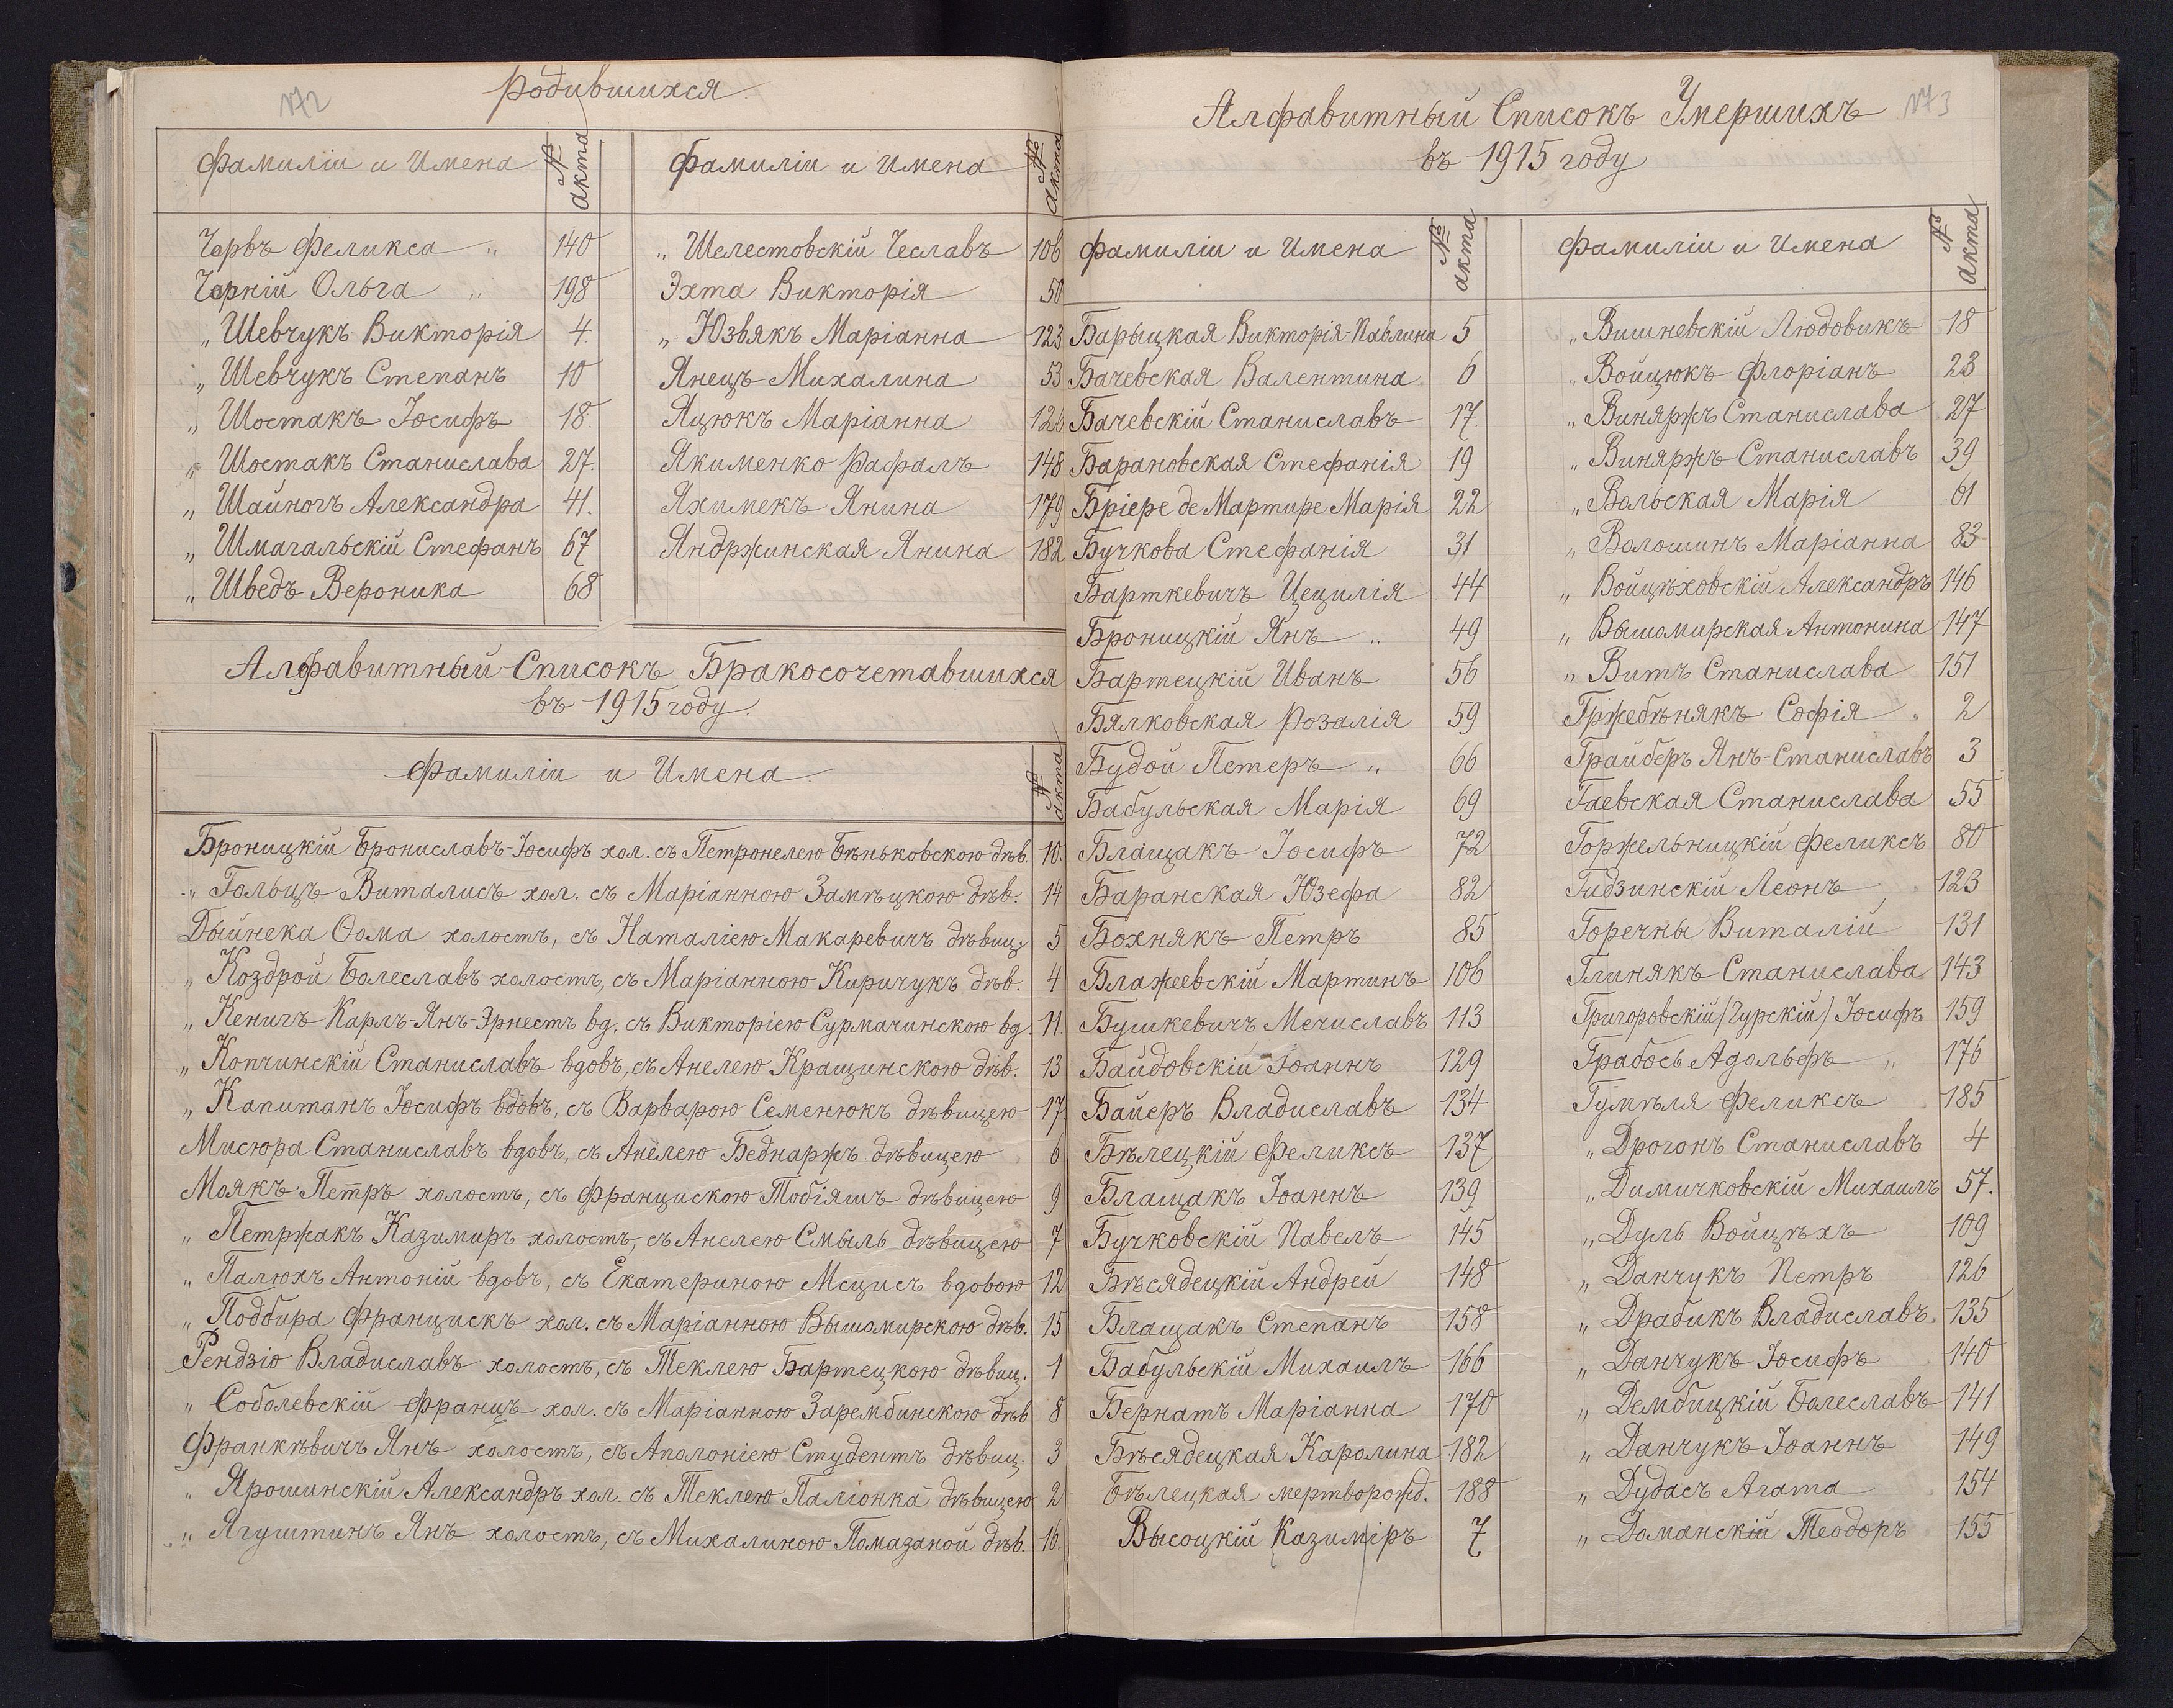 172
Родившихся
Фамиліи и Имена № акта
Червъ Феликса „ 140
Чернiй Ольга „ 198
„ Шевчукъ Викторія 4.
„ Шевчукъ Степанъ 10
„ Шостакъ Іосифъ 18.
„ Шостакъ Станислава 27.
„ Шайногъ Александра 41.
„ Шмагальскій Стефанъ 67
„ Шведъ Вероника 68
Фамиліи и Имена № акта
„ Шелестовскій Чеславъ 106
Эхта Викторія 50
„ Юзвякъ Маріанна 123
Янецъ Михалина 53
Яцюкъ Маріанна 120
Якименко Рафалъ 148
Яхимекъ Янина 179
Янджинская Янина 182
Алфавитный Списокъ Бракосочетавшихся
въ 1915 году.
Фамиліи и Имена № акта
Броницкій Брониславъ-Іосифъ хол. съ Петронелею Бѣньковскою дѣв. 10.
„ Гольцъ Виталисъ хол. съ Маріанною Замѣцкою дѣв. 14
Дыйнека Ѳома холостъ, съ Наталіею Макаревичъ дѣвиц. 5
„ Коздрой Болеславъ холостъ, съ Маріанною Киричукъ дѣв. 4
„ Кенигъ Карлъ-Янъ-Эрнестъ вд. съ Викторіею Сурмачинскою вд. 11.
„ Копчинскій Станиславъ вдовъ, съ Анелею Кращинскою дѣв. 13
„ Капитанъ Іосифъ вдовъ, съ Варварою Семенюкъ дѣвицею 17.
Мисюра Станиславъ вдовъ, съ Анелею Беднаржъ дѣвицею 6
Моякъ Петръ холостъ, съ Францискою Тобіяшъ дѣвицею 9
„ Петржакъ Казимиръ холостъ, съ Анелею Смыль дѣвицею 7
„ Палюхъ Антоній вдовъ, съ Екатериною Мсцисъ вдовою 12
„ Поддбира Францискъ хол. съ Маріанною Вышомирскою дѣв. 15
Рендзіо Владиславъ холостъ, съ Теклею Бартецкою дѣвиц. 1
„ Соболевскій Францъ хол. съ Маріанною Зарембинскою дѣв 8
Франкѣвичъ Янъ холостъ, съ Аполоніею Студентъ дѣвиц. 3
„ Ярошинскій Александръ хол. съ Теклею Паліонка дѣвицею 2
„ Ягуштинъ Янъ холостъ, съ Михалиною Помазаной дѣв. 16.
173
Алфавитный Списокъ Умершихъ
въ 1915 году
Фамиліи и Имена № акта
Барыцкая Викторія-Павлина 5
Бачевская Валентина 6
Бачевскій Станиславъ 17.
Барановская Стефанія 19
Бріере де Мартире Марія 22
Бучкова Стефанія 31
Барткевичъ Цецилія 44
Броницкій Янъ „ 49
Бартецкій Иванъ 56
Бялковская Розалія 59
Будой Петеръ „ 66
Бабульская Марія 69
Блащакъ Іосифъ 72
Баранская Юзефа 82
Бохнякъ Петръ 85
Блажеевскій Мартинъ 106
Бушкевичъ Мечиславъ 113
Байдовскій Іоаннъ 129
Байеръ Владиславъ 134
Бѣлецкій Феликсъ 137
Блащакъ Іоаннъ 139
Бучковскій Павелъ 145
Бѣсядецкій Андрей 148
Блащакъ Степанъ 158
Бабульскій Михаилъ 166
Бернатъ Маріанна 170
Бѣсядецкая Каролина 182
Бѣлецкая мертворожд. 188
Высоцкій Казиміръ 7
Фамиліи и Имена № акта
„ Вишневскій Людовикъ 18
„ Войцюкъ Флоріанъ 23
„ Виняржъ Станислава 27
„ Виняржъ Станиславъ 39
„ Вольская Марія 61
„ Волошинъ Маріанна 83
„ Войцѣховскій Александръ 146
„ Вышомирская Антонина 147
„ Витъ Станислава 151
Гржебѣнякъ Софія „ 2
Грайберъ Янъ-Станиславъ 3
Гаевская Станислава 55
Горжельницкій Феликсъ 80
Гидзинскій Леонъ „ 123
Горечны Виталій 131
Глинякъ Станислава 143
Григоровскій /Гурскій/ Іосифъ 159
Грабось Адольфъ „ 176
Гумѣля Феликсъ 185
„ Дрогонъ Станиславъ 4
„ Димичковскій Михаилъ 57.
„ Дуль Войцѣхъ 109
„ Данчукъ Петръ 126
„ Драбикъ Владиславъ. 135
„ Данчукъ Іосифъ 140
„ Дембицкій Болеславъ 141
„ Данчукъ Іоаннъ 149
„ Дудасъ Агата 154
„ Доманскій Теодоръ 155